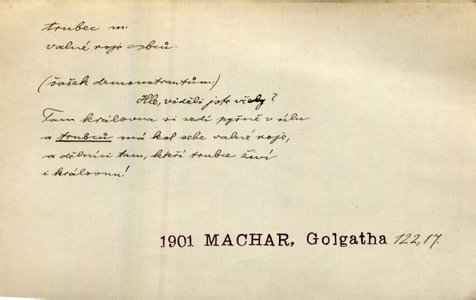 trubec m.
valné roje trubců
(šašek demonstrantům:)
Hle, viděli jste včely?
Tam královna si sedí pyšně v úlu
a trubců má kol sebe valné roje,
a dělníci tam, kteří trubce živí
i královnu!
1901 MACHAR, Golgatha 122,17.